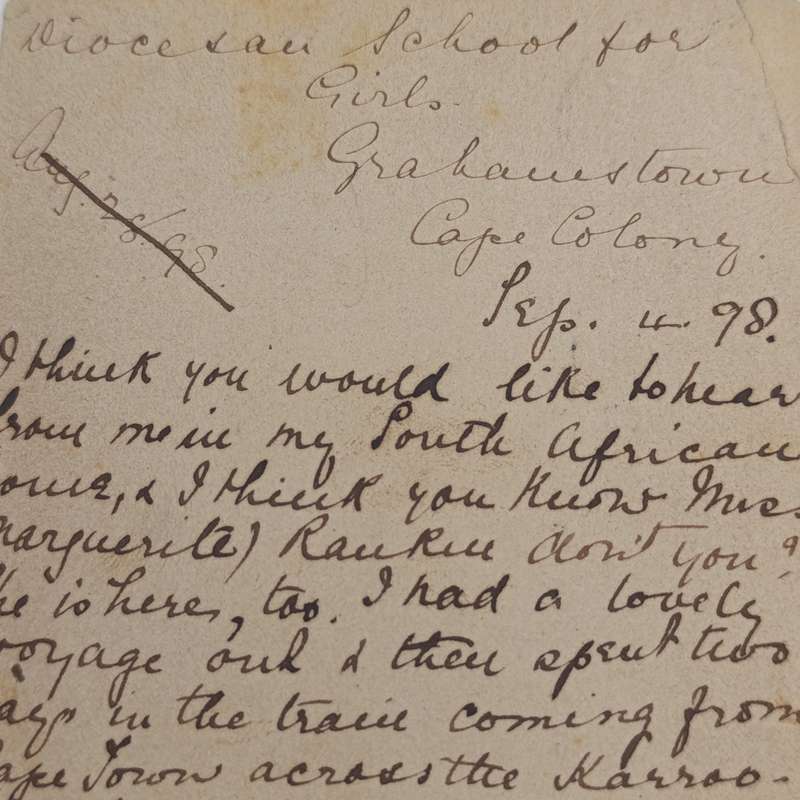 Diocesan School for
Girls.
Grahamstown
Aug. 28/98.
Cape Colony.
Sep. 4. 98.
I think you would like to hear
from me in my South African
ome, & I think you know Miss
Marguerite) Rankin don't you?
he is here, too. I had a lovely
voyage out & then spent two
ays in the train coming from
ape Town across the Karroo-